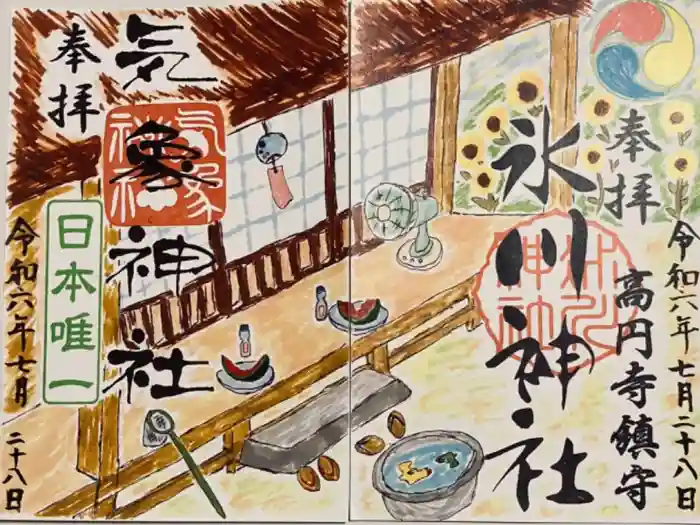 高円寺鎮守
奉拝
氷川神社
氷川神社
令和六年七月二十八日
奉拝
気象神社
気象神社
日本唯一
令和六年七月
二十八日